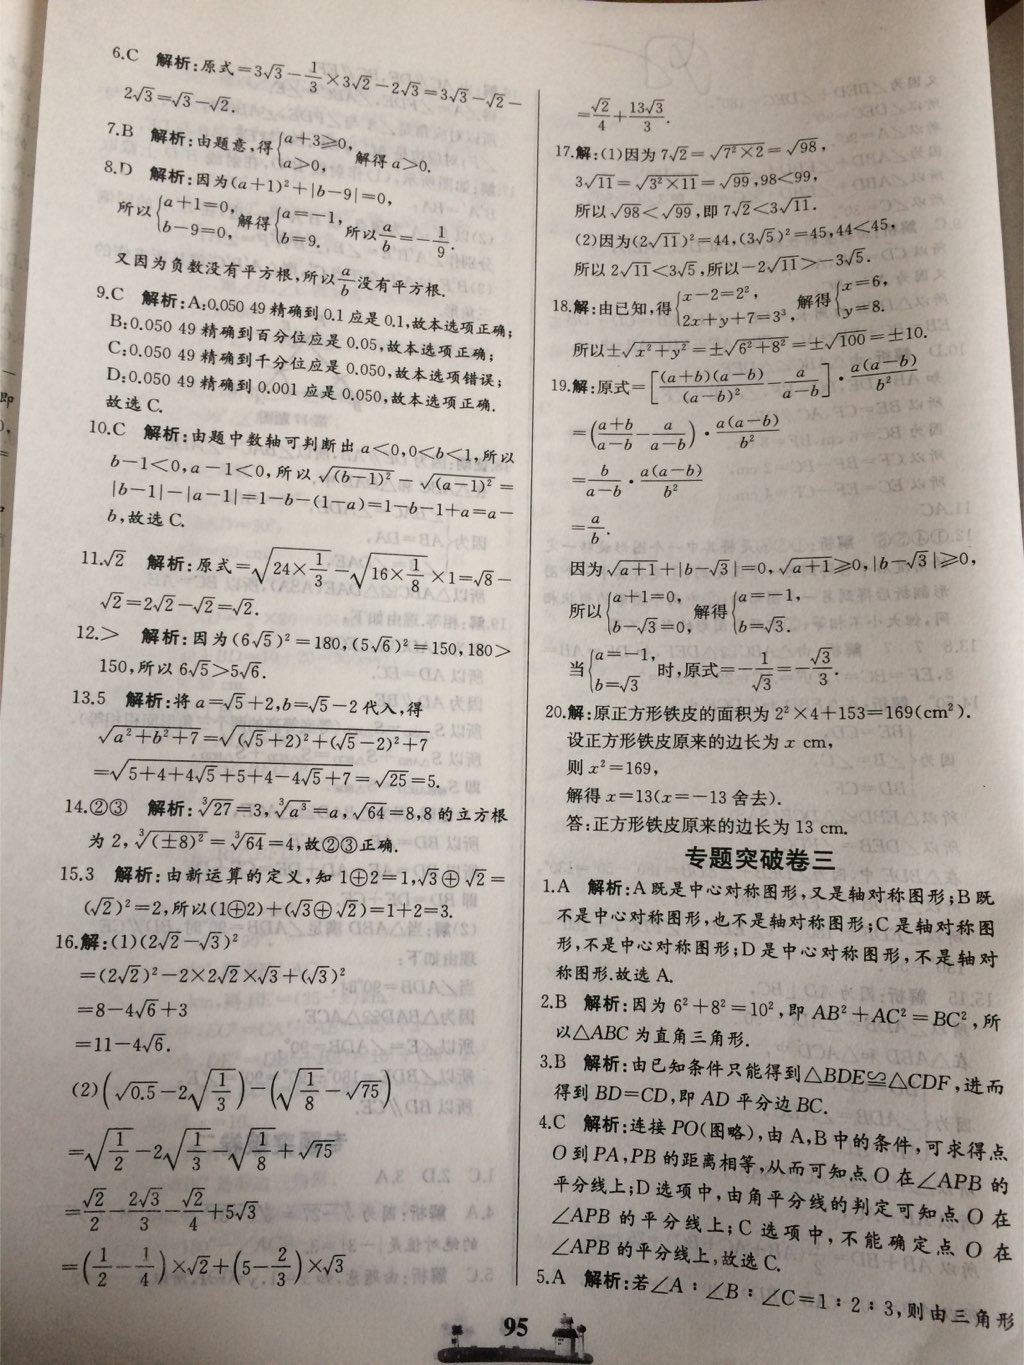 6.C 解析:原式=3√3-1/3×3√2-2√3=3√3-√2-
2√3=√3-√2.
7.B 解析:由题意,得{a+3≥0, a>0, 解得a>0.
8.D 解析:因为(a+1)²+|b-9|=0,
所以{a+1=0, b-9=0, 解得{a=-1, b=9. 所以a/b=-1/9.
又因为负数没有平方根,所以a/b没有平方根.
9.C 解析:A:0.050 49精确到0.1应是0.1,故本选项正确;
B:0.050 49精确到百分位应是0.05,故本选项正确;
C:0.050 49精确到千分位应是0.050,故本选项错误;
D:0.050 49精确到0.001应是0.050,故本选项正确.
故选C.
10.C 解析:由题中数轴可判断出a<0,0<b<1,所以
b-1<0,a-1<0,所以√(b-1)²-√(a-1)²=
|b-1|-|a-1|=1-b-(1-a)=1-b-1+a=a-
b,故选C.
11.√2 解析:原式=√(24×1/3)-√(16×1/8)×1=√8-
√2=2√2-√2=√2.
12.> 解析:因为(6√5)²=180,(5√6)²=150,180>
150,所以6√5>5√6.
13.5 解析:将a=√5+2,b=√5-2代入,得
√(a²+b²+7)=√((√5+2)²+(√5-2)²+7)
=√(5+4+4√5+5+4-4√5+7)=√25=5.
14.②③ 解析:∛27=3,∛a³=a,√64=8,8的立方根
为2,∛(±8)²=∛64=4,故②③正确.
15.3 解析:由新运算的定义,知1⊕2=1,√3⊕√2=
(√2)²=2,所以(1⊕2)+(√3⊕√2)=1+2=3.
16.解:(1)(2√2-√3)²
=(2√2)²-2×2√2×√3+(√3)²
=8-4√6+3
=11-4√6.
(2)(√0.5-2√(1/3))-(√(1/8)-√75)
=√(1/2)-2√(1/3)-√(1/8)+√75
=√2/2-2√3/3-√2/4+5√3
=(1/2-1/4)×√2+(5-2/3)×√3
=√2/4+13√3/3.
17.解:(1)因为7√2=√(7²×2)=√98,
3√11=√(3²×11)=√99,98<99,
所以√98<√99,即7√2<3√11.
(2)因为(2√11)²=44,(3√5)²=45,44<45,
所以2√11<3√5,所以-2√11>-3√5.
18.解:由已知,得{x-2=2², 2x+y+7=3³, 解得{x=6, y=8.
所以±√(x²+y²)=±√(6²+8²)=±√100=±10.
19.解:原式=[(a+b)(a-b)/(a-b)²-a/(a-b)]·a(a-b)/b²
=((a+b)/(a-b)-a/(a-b))·a(a-b)/b²
=b/(a-b)·a(a-b)/b²
=a/b.
因为√(a+1)+|b-√3|=0,√(a+1)≥0,|b-√3|≥0,
所以{a+1=0, b-√3=0, 解得{a=-1, b=√3.
当{a=-1, b=√3 时,原式=-1/√3=-√3/3.
20.解:原正方形铁皮的面积为2²×4+153=169(cm²).
设正方形铁皮原来的边长为x cm,
则x²=169,
解得x=13(x=-13舍去).
答:正方形铁皮原来的边长为13 cm.
专题突破卷三
1.A 解析:A既是中心对称图形,又是轴对称图形;B既
不是中心对称图形,也不是轴对称图形;C是轴对称图
形,不是中心对称图形;D是中心对称图形,不是轴对
称图形.故选A.
2.B 解析:因为6²+8²=10²,即AB²+AC²=BC²,所
以△ABC为直角三角形.
3.B 解析:由已知条件只能得到△BDE≌△CDF,进而
得到BD=CD,即AD平分边BC.
4.C 解析:连接PO(图略),由A,B中的条件,可求得点
O到PA,PB的距离相等,从而可知点O在∠APB的
平分线上;D选项中,由角平分线的判定可知点O在
∠APB的平分线上;C选项中,不能确定点O在
∠APB的平分线上,故选C.
5.A 解析:若∠A∶∠B∶∠C=1∶2∶3,则由三角形
95